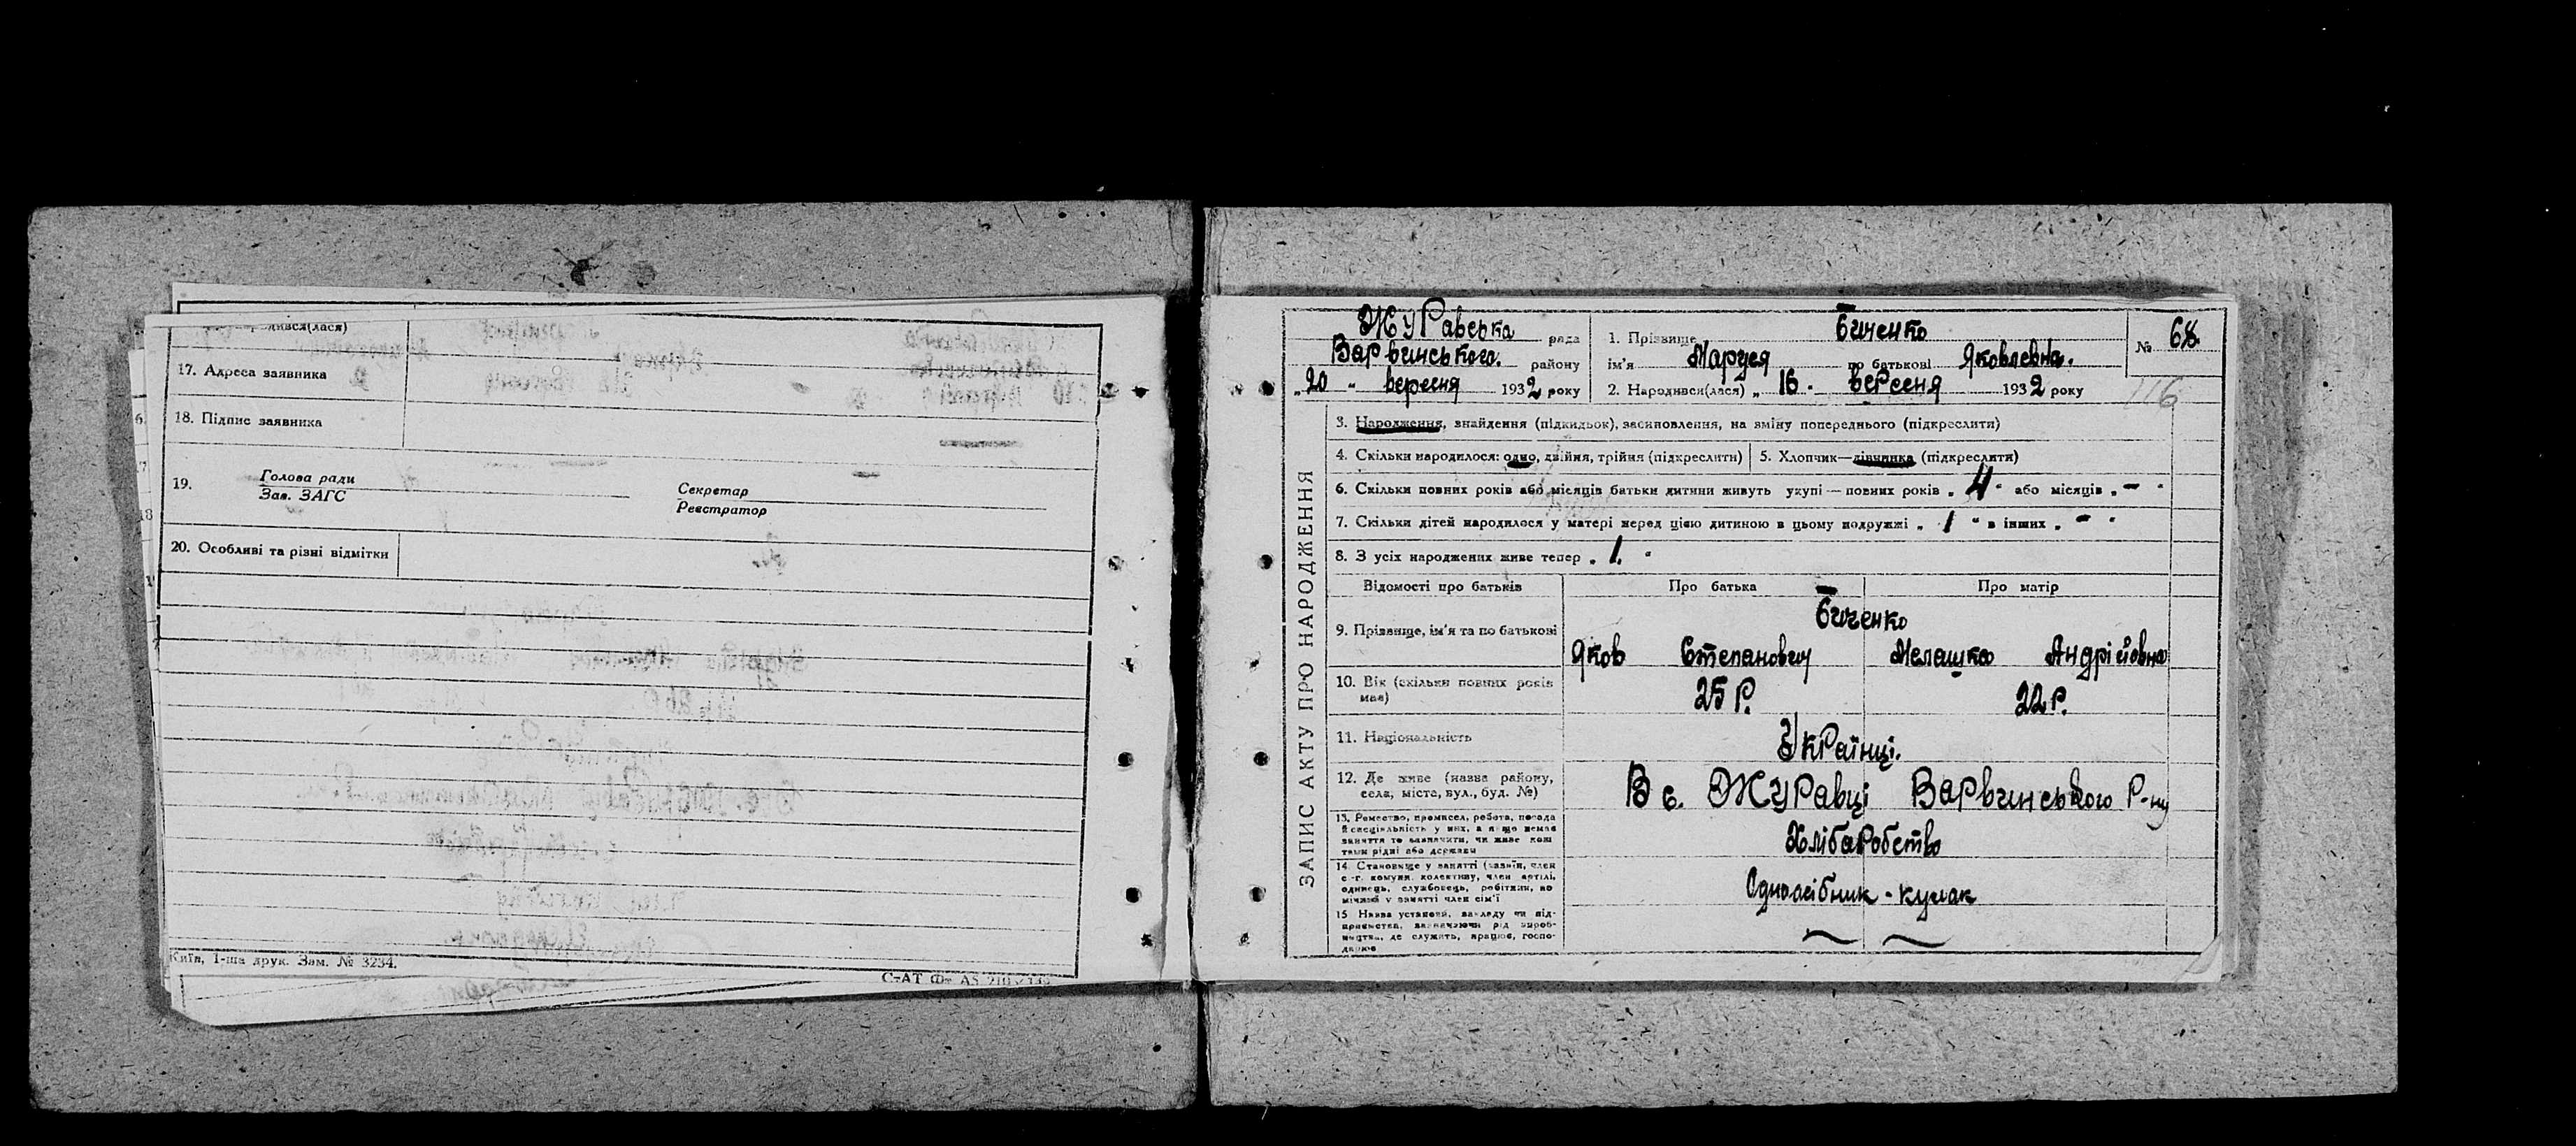 17. Адреса заявника
18. Підпис заявника
19. Голова ради
Зав. ЗАГС
Секретар
Реєстратор
20. Особливі та різні відмітки
Київ, 1-ша друк. Зам. № 3234.
ЗАПИС АКТУ ПРО НАРОДЖЕННЯ
Журавська рада
Варвинського. району
„20 " вересня 1932 року
1. Прізвище Биченко
ім'я Маруся по батькові Яковлевна.
2. Народився(лася) „ 16 " вересня 1932 року
№ 68
116
3. Народження, знайдення (підкидьок), засиновлення, на зміну попереднього (підкреслити)
4. Скільки народилося: одно, двійня, трійня (підкреслити)
5. Хлопчик—дівчинка (підкреслити)
6. Скільки повних років або місяців батьки дитини живуть укупі — повних років „ 4 " або місяців „ — "
7. Скільки дітей народилося у матері перед цією дитиною в цьому подружжі „ 1 " в інших „ — "
8. З усіх народжених живе тепер „ 1. "
Відомості про батьків
Про батька
Про матір
9. Прізвище, ім'я та по батькові
Биченко
Яков Степанович
Мелашка Андрійовна
10. Вік (скільки повних років має)
25 р.
22 р.
11. Національність
Українці.
12. Де живе (назва району,
села, міста, вул., буд. №)
В с. Журавці Варвинського Р-ну
13. Ремество, промисел, робота, посада
й спеціяльність у них, а якщо немає
заняття то зазначити, чи живе кош
тами рідні або держави
Хліборобство
14. Становище у занятті (хазяїн, член
с.-г. комуни, колективу, член артілі,
одинець, службовець, робітник, до
Одноосібник - кулак
15 Назва установи, закладу чи під-
приємства, зазначаючи рід вироб-
ництва, де служить, працює, госпо-
дарює